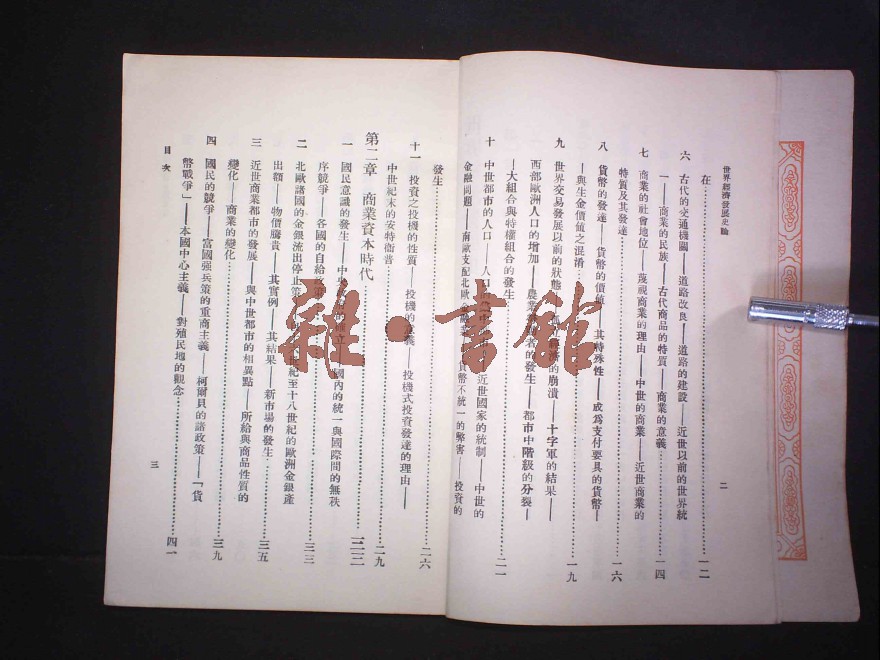 世界經濟發展史論
二
在……一二
六 古代的交通機關——道路改良——道路的建設——近世以前的世界統
一——商業的民族——古代商品的特質——商業的意義……一四
七 商業的社會地位——蔑視商業的理由——中世的商業——近世商業的
特質及其發達……一六
八 貨幣的發達——貨幣的價値——其特殊性——成爲支付要具的貨幣—
—與生金價値之混淆……一九
九 世界交易發展以前的狀態 的崩潰——十字軍的結果——
西部歐洲人口的增加——農業 者的發生——都市中階級的分裂—
—大組合與特權組合的發生……二一
十 中世都市的人口——人口的 近世國家的統制——中世的
金融問題——南歐支配北歐金 貨幣不統一的弊害——投資的
發生……二六
十一 投資之投機的性質——投機的意義——投機式投資發達的理由——
中世紀末的安特衞普……二九
第二章 商業資本時代……三二
一 國民意識的發生——中央 的確立——國內的統一與國際間的無秩
序競爭——各國的自給政策……三三
二 北歐諸國的金銀流出停止策 世紀至十八世紀的歐洲金銀產
出額——物價騰貴——其實例——其結果——新市場的發生……三五
三 近世商業都市的發展——與中世都市的相異點——所給與商品性質的
變化——商業的變化……三九
四 國民的競爭——富國强兵策的重商主義——柯爾貝的諸政策——「貨
幣戰爭」——本國中心主義——對殖民地的觀念……四一
目次
三
雜·書館